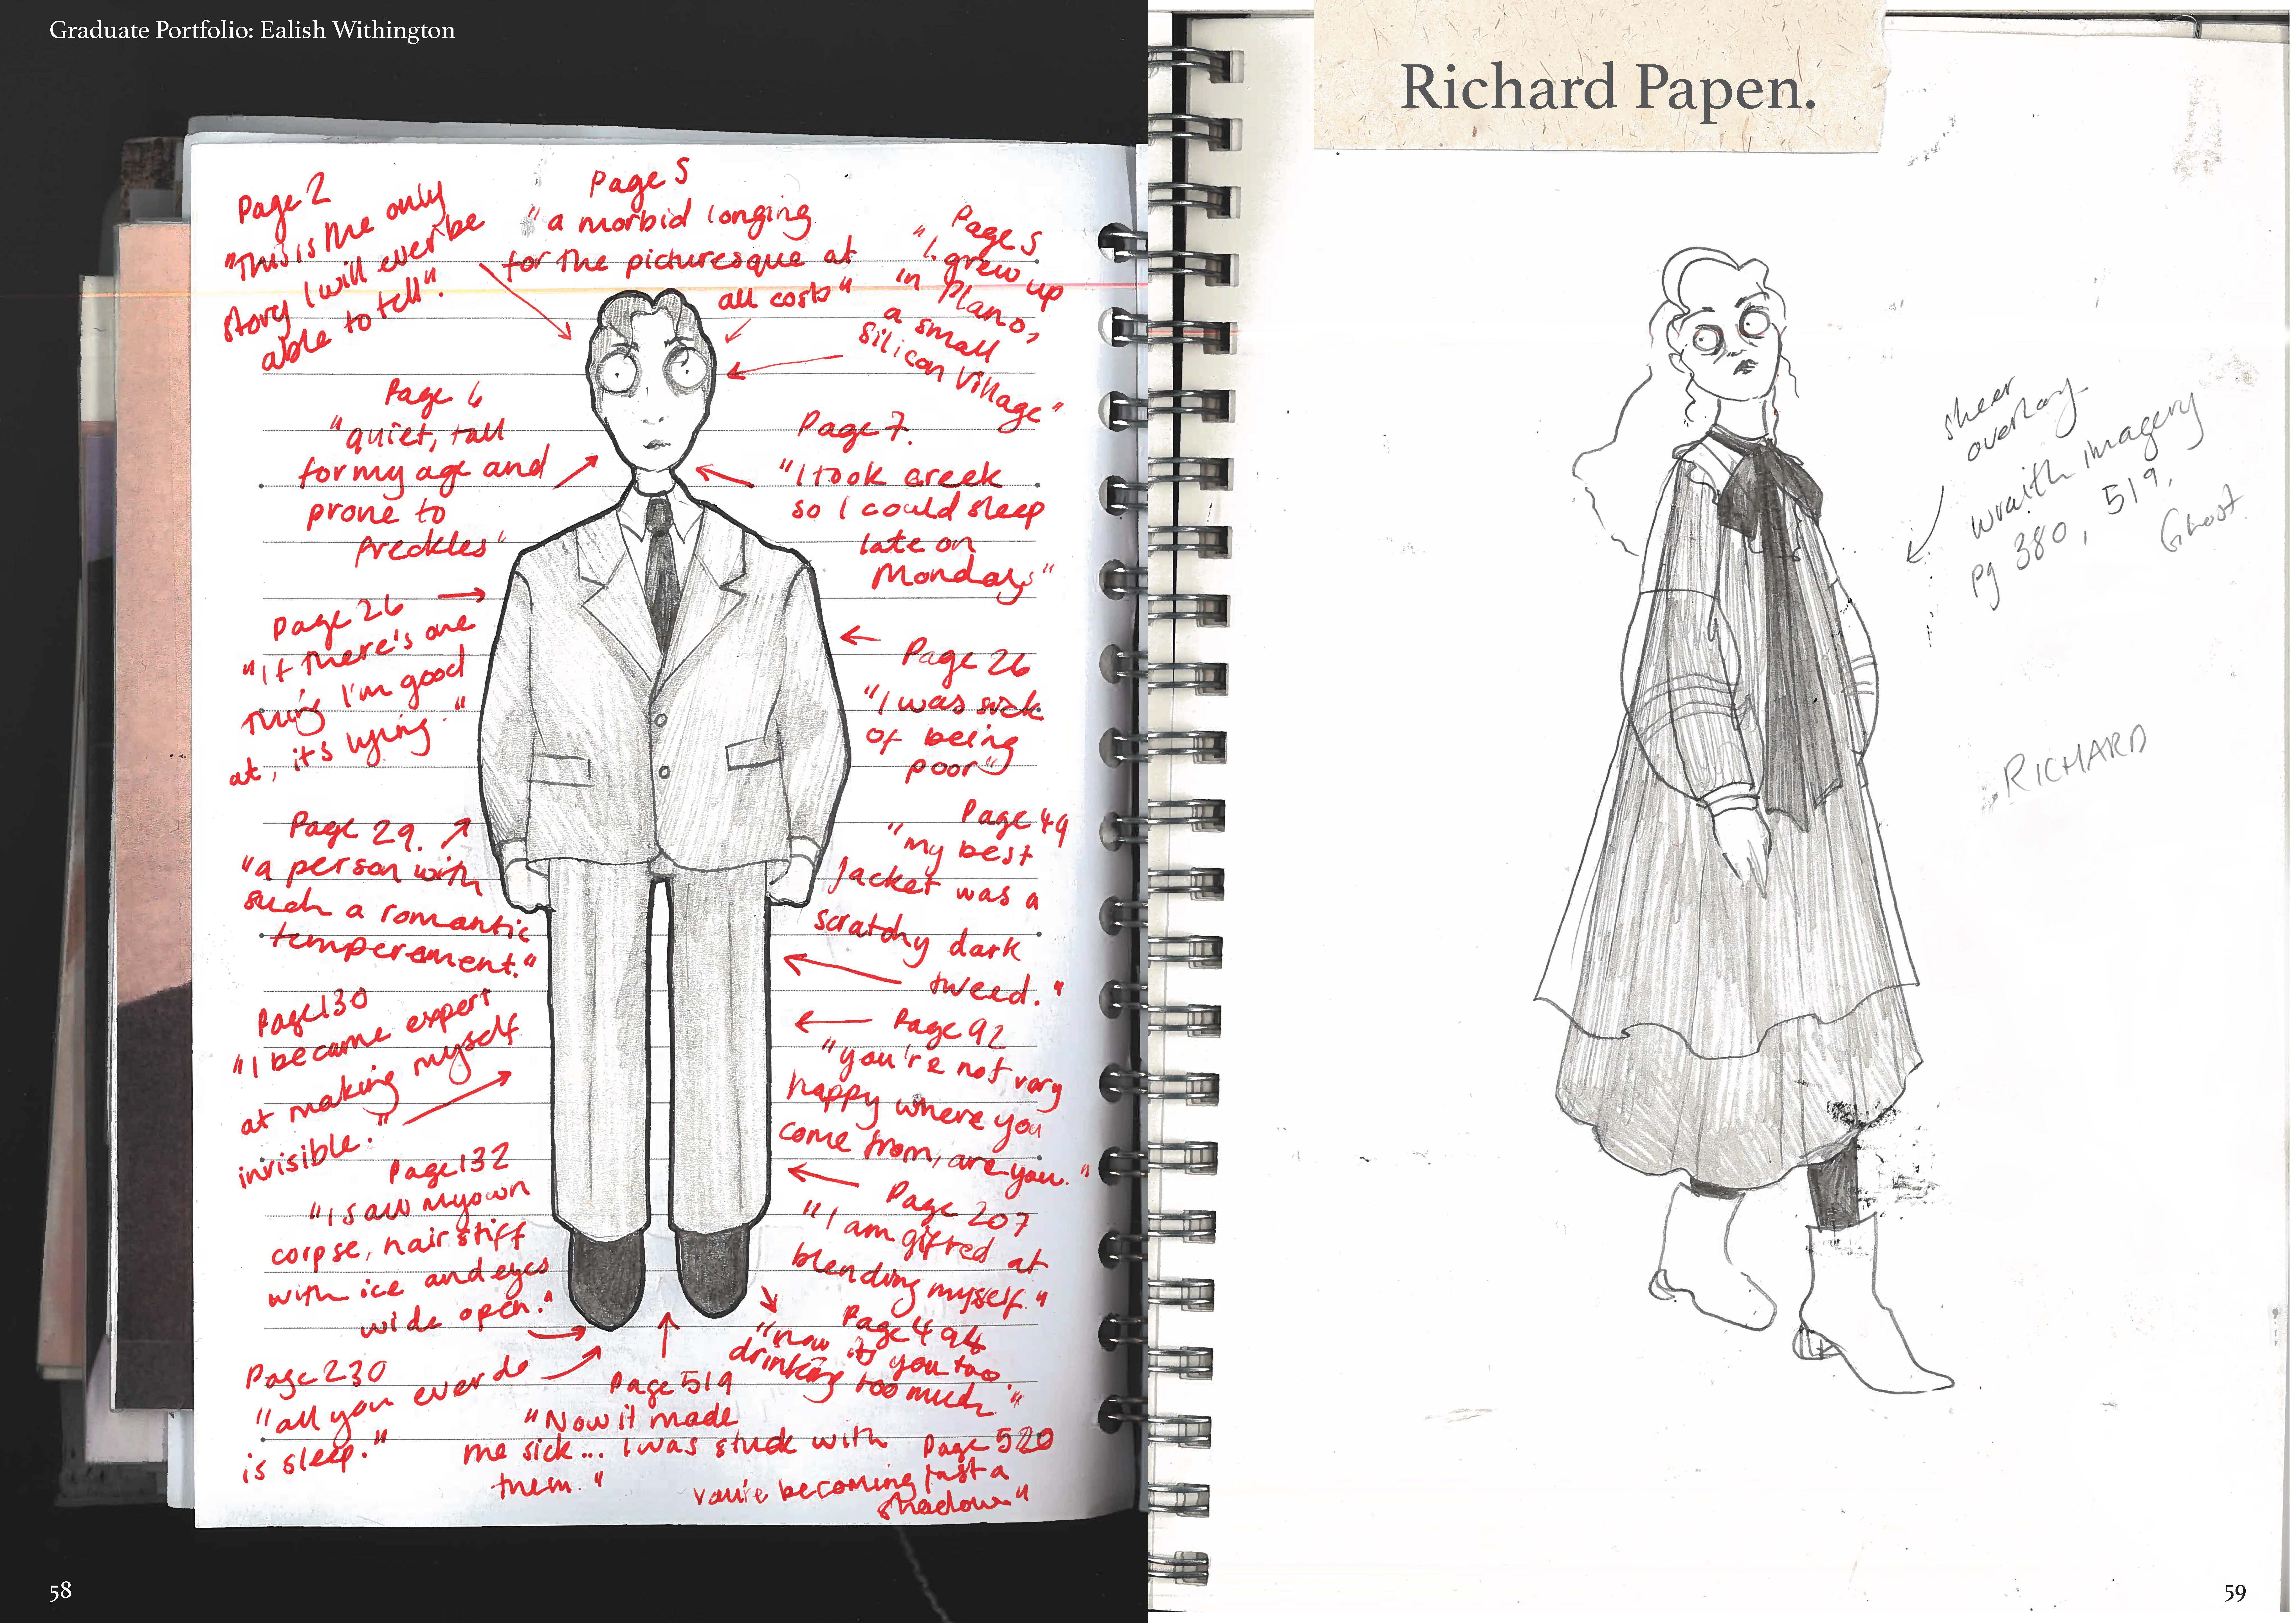 Graduate Portfolio: Ealish Withington
Page 2
"This is the only
story I will ever be
able to tell".
Page 5
"a morbid longing
for the picturesque at
all costs"
Page 5
"I grew up
in Plano,
a small
silicon village"
Page 6
"quiet, tall
for my age and
prone to
freckles"
Page 7.
"I took Greek
so I could sleep
late on
Mondays"
Page 26
"If there's one
thing I'm good
at, it's lying."
Page 26
"I was sick
of being
poor"
Page 29.
"a person with
such a romantic
temperament."
Page 49
"my best
jacket was a
scratchy dark
tweed."
Page 130
"I became expert
at making myself
invisible."
Page 92
"you're not very
happy where you
come from, are you."
Page 132
"I saw my own
corpse, hair stiff
with ice and eyes
wide open."
Page 207
"I am gifted at
blending myself."
Page 230
"all you ever do
is sleep."
Page 519
"Now it made
me sick... I was stuck with
them."
Page 494
"now it's you too.
drinking too much"
Page 520
you're becoming just a
shadow"
58
Richard Papen.
sheer
overlay
wraith imagery
pg 380, 519,
Ghost.
RICHARD
59